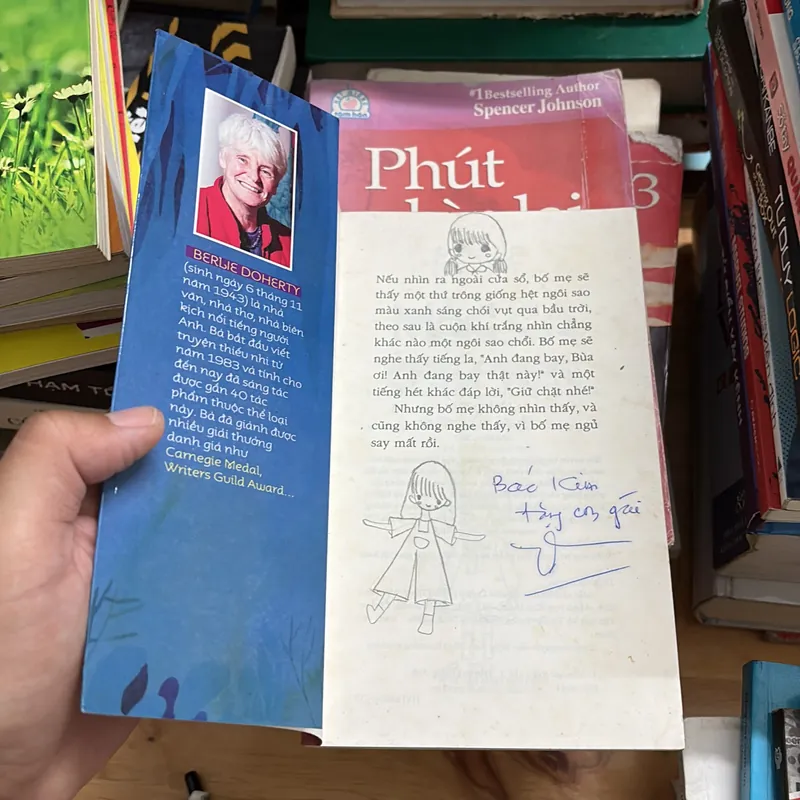 BERLIE DOHERTY
(sinh ngày 6 tháng 11
năm 1943) là nhà
văn, nhà thơ, nhà biên
kịch nổi tiếng người
Anh. Bà bắt đầu viết
truyện thiếu nhi từ
năm 1983 và tính cho
đến nay đã sáng tác
được gần 40 tác
phẩm thuộc thể loại
này. Bà đã giành được
nhiều giải thưởng
danh giá như
Carnegie Medal,
Writers Guild Award...
#1 Bestselling Author
Spencer Johnson
Phút
3
Nếu nhìn ra ngoài cửa sổ, bố mẹ sẽ
thấy một thứ trông giống hệt ngôi sao
màu xanh sáng chói vụt qua bầu trời,
theo sau là cuộn khí trắng nhìn chẳng
khác nào một ngôi sao chổi. Bố mẹ sẽ
nghe thấy tiếng la, "Anh đang bay, Bùa
ơi! Anh đang bay thật này!" và một
tiếng hét khác đáp lời, "Giữ chặt nhé!"
Nhưng bố mẹ không nhìn thấy, và
cũng không nghe thấy, vì bố mẹ ngủ
say mất rồi.
Bác Kim
tặng con gái
TƯ DUY LOGIC